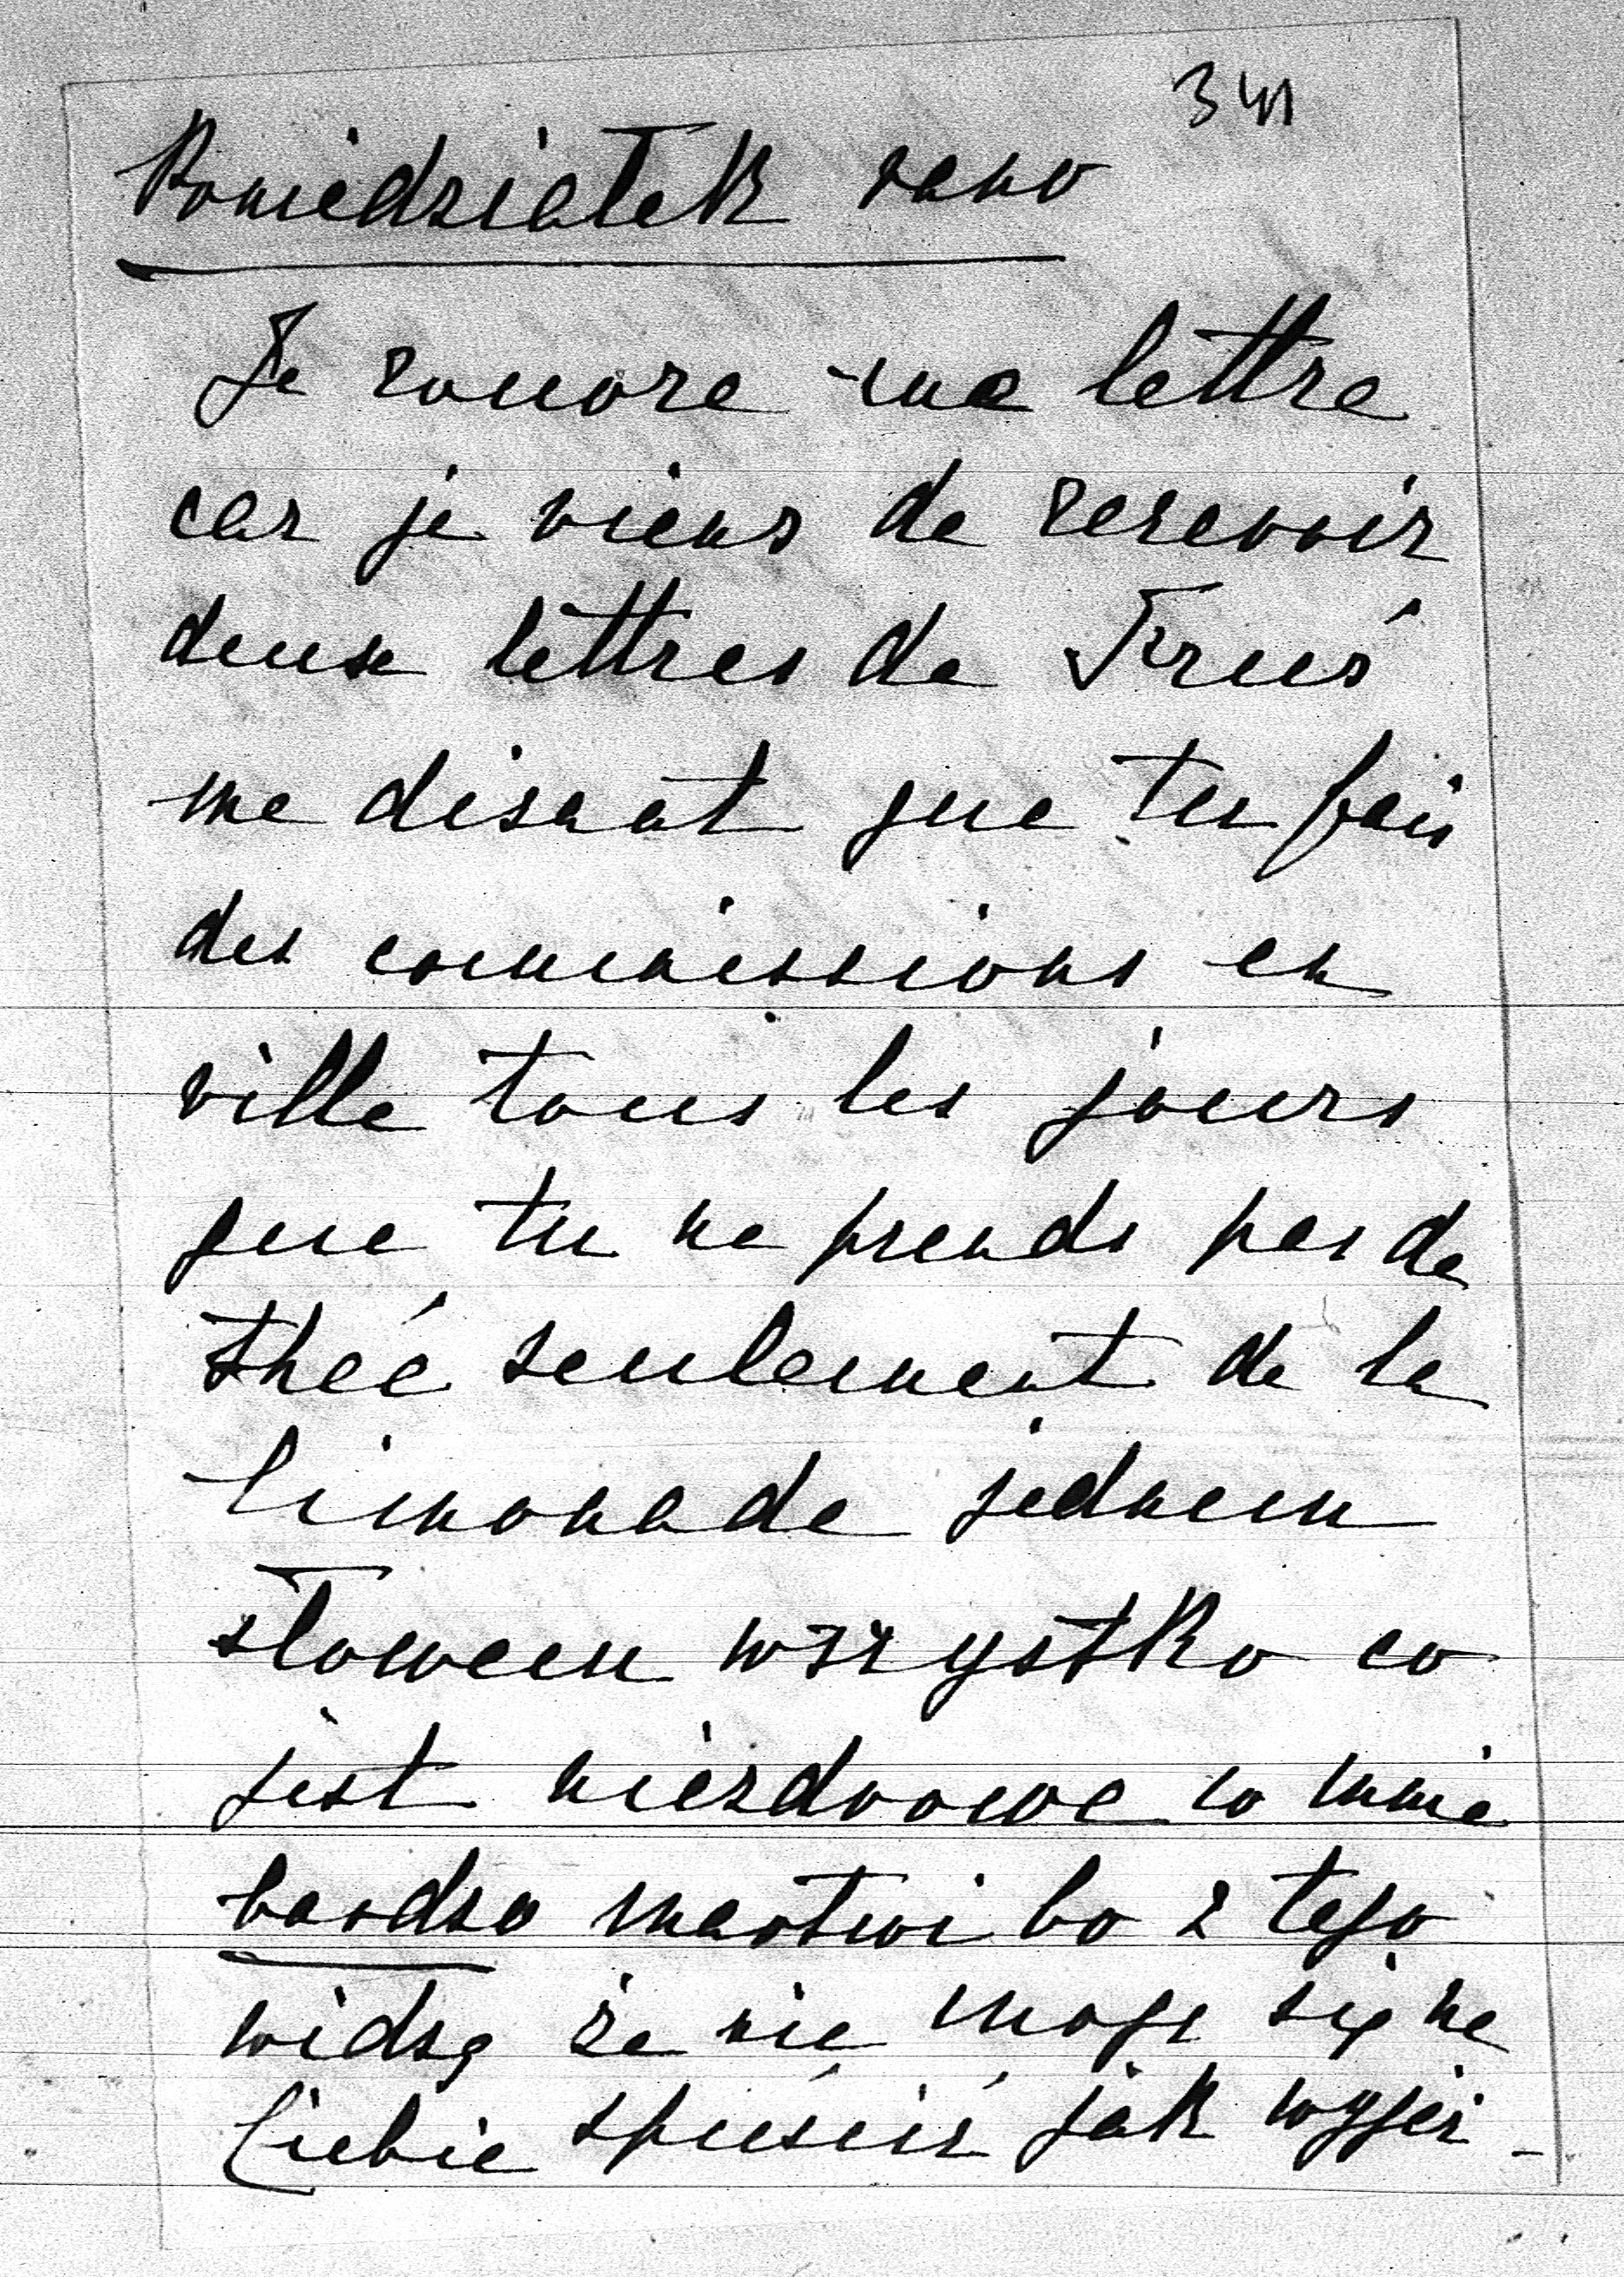 341
Poniedziałek rano
Je rouvre ma lettre
car je viens de recevoir
deux lettres de Truś
me disant que tu fais
des commissions en
ville tous les jours
que tu ne prends pas de
thée seulement de la
limonade jednem
słowem wszystko co
jest niezdrowe co mnie
bardzo martwi bo z tego
widzę że nie mogę się na
Ciebie spuścić jak wyjeż-